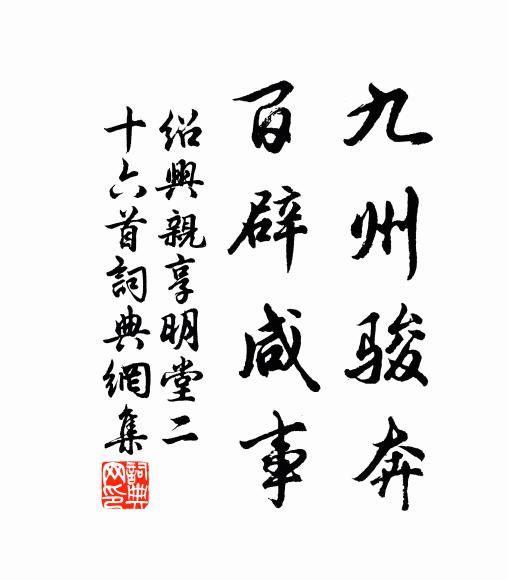 九州骏奔
百辟咸事
绍興親享明堂二
十六首詞典網集
詞典网印